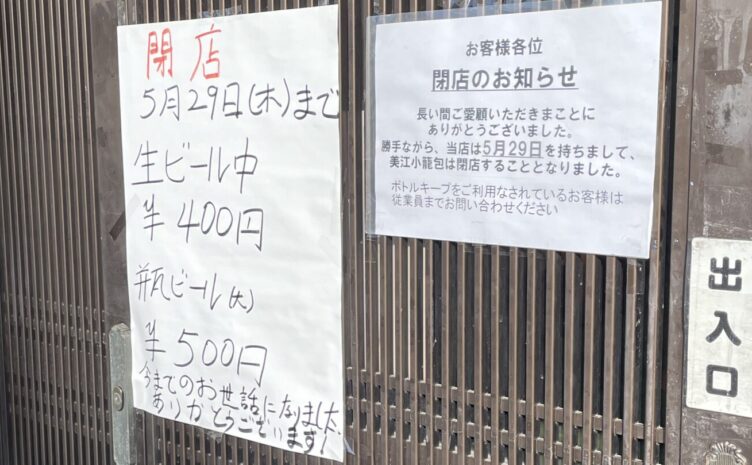 閉店
5月29日(木)まで
生ビール中
半400円
瓶ビール(大)
半500円
今までのお世話になりました。
ありがとうございます!
お客様各位
閉店のお知らせ
長い間ご愛顧いただきまことに
ありがとうございました。
勝手ながら、当店は5月29日を持ちまして、
美江小龍包は閉店することとなりました。
ボトルキープをご利用なされているお客様は
従業員までお問い合わせください
出入口